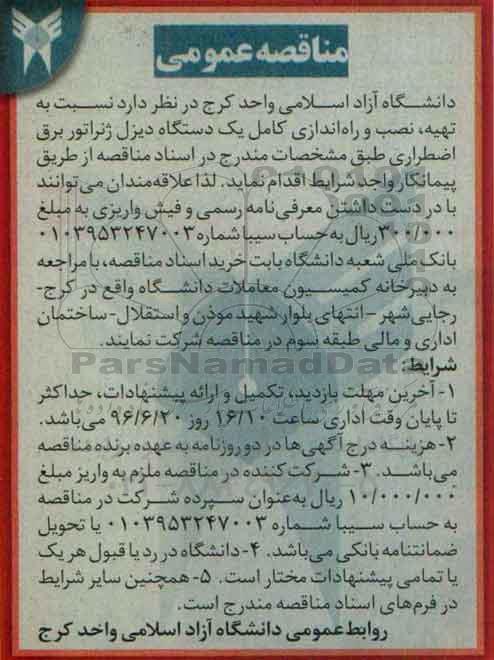 مناقصه عمومی
دانشگاه آزاد اسلامی واحد کرج در نظر دارد نسبت به
تهیه، نصب و راه‌اندازی کامل یک دستگاه دیزل ژنراتور برق
اضطراری طبق مشخصات مندرج در اسناد مناقصه از طریق
پیمانکار واجد شرایط اقدام نماید. لذا علاقه‌مندان می‌توانند
با در دست داشتن معرفی‌نامه رسمی و فیش واریزی به مبلغ
۳۰۰/۰۰۰ ریال به حساب سیبا شماره ۰۱۰۳۹۵۳۲۴۷۰۰۳
بانک ملی شعبه دانشگاه بابت خرید اسناد مناقصه، با مراجعه
به دبیرخانه کمیسیون معاملات دانشگاه واقع در کرج-
رجایی‌شهر -انتهای بلوار شهید موذن و استقلال- ساختمان
اداری و مالی طبقه سوم در مناقصه شرکت نمایند.
شرایط:
ParsNamadData
۱- آخرین مهلت بازدید، تکمیل و ارائه پیشنهادات، حداکثر
تا پایان وقت اداری ساعت ۱۶/۱۰ روز ۹۶/۶/۲۰ می‌باشد.
۲- هزینه درج آگهی‌ها در دو روزنامه به عهده برنده مناقصه
می‌باشد. ۳- شرکت کننده در مناقصه ملزم به واریز مبلغ
۱۰/۰۰۰/۰۰۰ ریال به‌عنوان سپرده شرکت در مناقصه
به حساب سیبا شماره ۰۱۰۳۹۵۳۲۴۷۰۰۳ یا تحویل
ضمانتنامه بانکی می‌باشد. ۴- دانشگاه در رد یا قبول هر یک
یا تمامی پیشنهادات مختار است. ۵- همچنین سایر شرایط
در فرم‌های اسناد مناقصه مندرج است.
روابط عمومی دانشگاه آزاد اسلامی واحد کرج